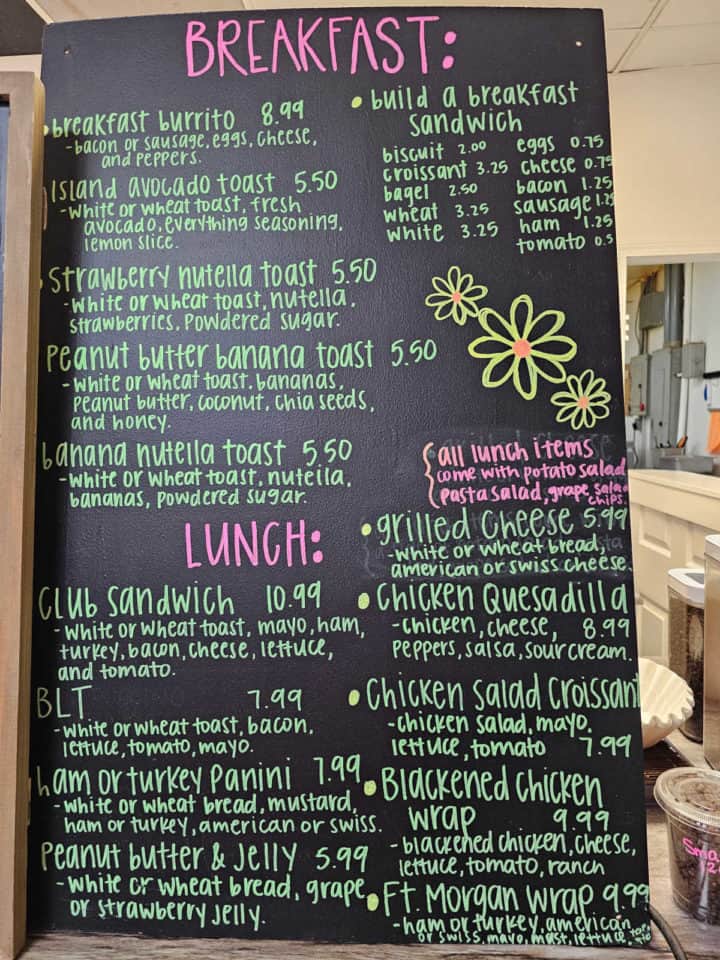 BREAKFAST:
breakfast burrito 8.99
-bacon or sausage, eggs, cheese,
and peppers.
Island avocado toast 5.50
-white or wheat toast, fresh
avocado, everything seasoning,
lemon slice.
Strawberry nutella toast 5.50
-white or wheat toast, nutella,
strawberries, powdered sugar.
peanut butter banana toast 5.50
-white or wheat toast. bananas,
peanut butter, coconut, chia seeds,
and honey.
banana nutella toast 5.50
-white or wheat toast, nutella,
bananas, powdered sugar.
build a breakfast
sandwich
biscuit 2.00
croissant 3.25
bagel 2.50
wheat 3.25
white 3.25
eggs 0.75
cheese 0.75
bacon 1.25
sausage 1.25
ham 1.25
tomato 0.5
all lunch items
come with potato salad
pasta salad, grape salad
chips.
LUNCH:
Club sandwich 10.99
-white or wheat toast, mayo, ham,
turkey, bacon, cheese, lettuce,
and tomato.
BLT 7.99
-white or wheat toast, bacon,
lettuce, tomato, mayo.
ham or turkey Panini 7.99
-white or wheat bread, mustard,
ham or turkey, american or swiss.
Peanut butter & Jelly 5.99
-white or wheat bread, grape
or strawberry jelly.
grilled cheese 5.99
-white or wheat bread,
american or swiss cheese.
Chicken Quesadilla
-chicken, cheese, 8.99
peppers, salsa, sour cream.
Chicken Salad Croissant
-chicken salad, mayo,
lettuce, tomato 7.99
Blackened chicken
wrap 9.99
-blackened chicken, cheese,
lettuce, tomato, ranch
Ft. Morgan wrap 9.99
-ham or turkey, american
or swiss, mayo, must, lettuce,